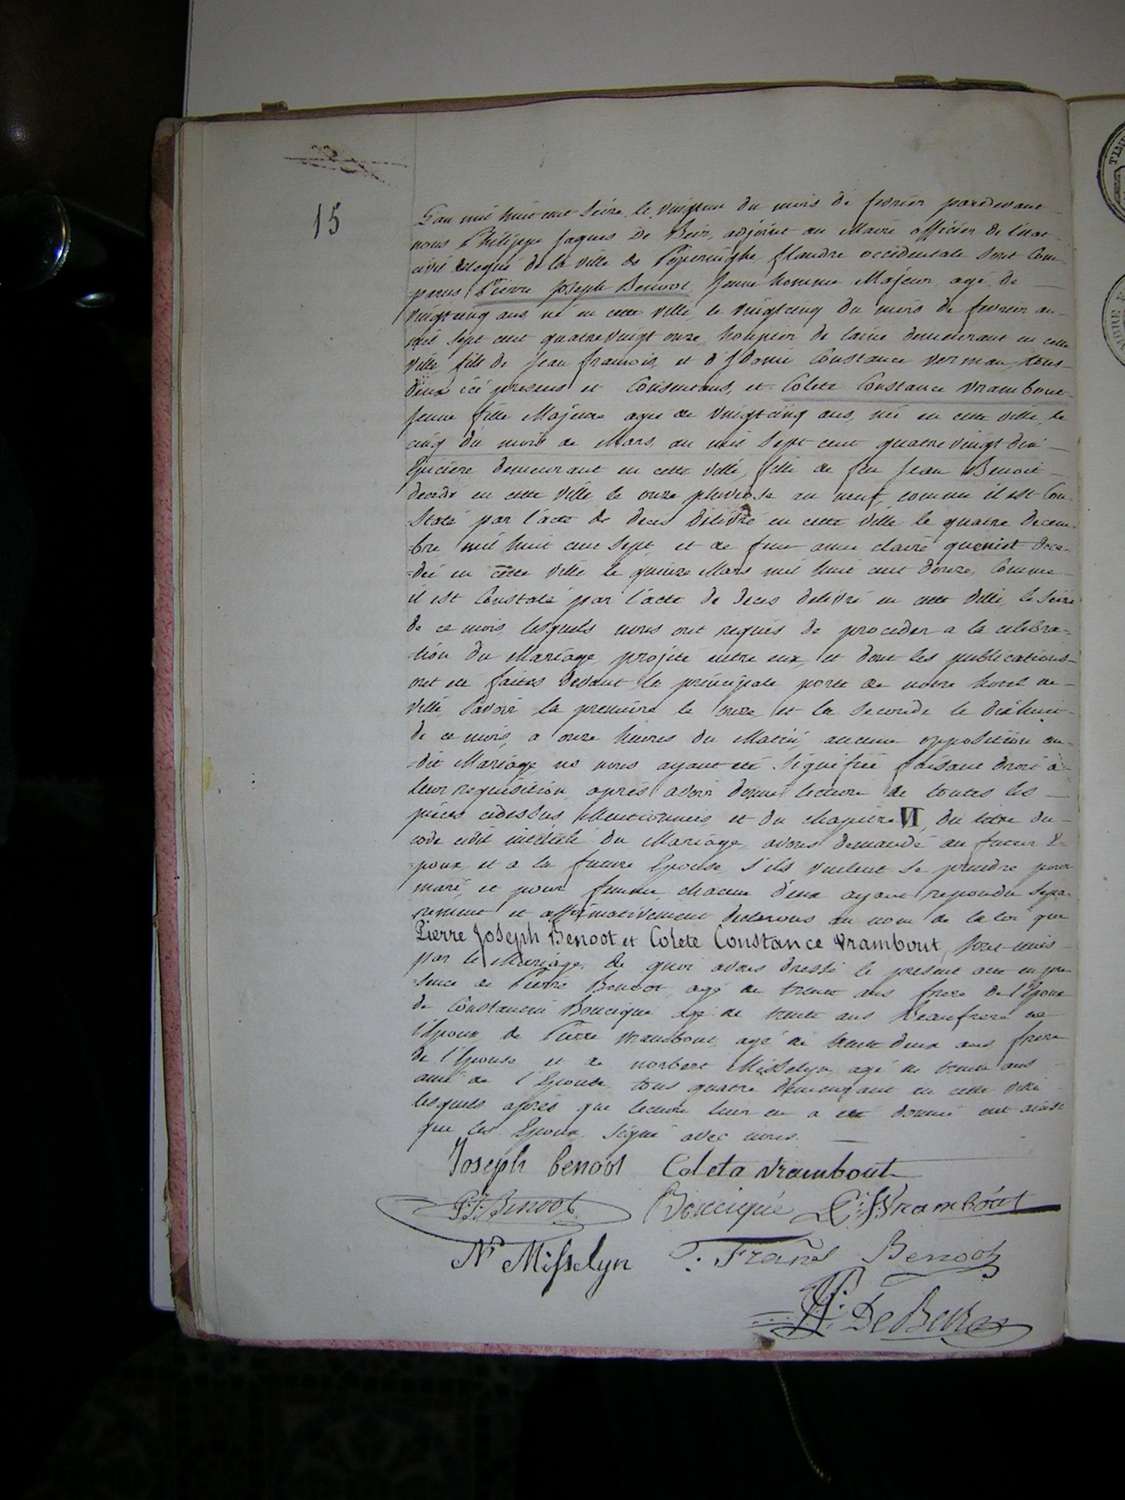 15
L'an mil huit cent seize le vingtun du mois de fevrier pardevant
nous Philippe Jaques De Beir, adjoint au Maire officier de l'etat
civil delegué de la ville de Poperinghe flandre occidentale sont Com-
parus Pierre Joseph Benoot Jeune homme Majeur agé de
vingtcinq ans né en cette ville le vingtcinq du mois de fevrier an
mil sept cent quatrevingt onze houpier de laine demeurant en cette
ville fils de Jean francois, et d' Constance tous-
deux ici presens et Consentans, et Colete Constance vrambout
Jeune fille Majeure agée de vingtcinq ans, née en cette ville, le
cinq du mois de Mars, an mil sept cent quatre vingt dix
Epiciere demeurant en cette ville, fille de feu Jean Benoit
decedé en cette ville le onze pluviose an neuf, comme il est Con-
staté par l'acte de deces delivré en cette ville le quatre decem-
bre mil huit cent sept et de feue anne claire queniet dece-
dée en cette ville le quinze Mars mil huit cent douze, Comme
il est Constaté par l'acte de deces delivré en cette ville, le seize
de ce mois, lesquels nous ont requis de proceder a la celebra-
tion du Mariage projeté entre eux, et dont les publications
ont été faites devant la principale porte de notre hotel de
ville, savoir la premiere le onze et la seconde le dixhuit
de ce mois, a onze heures du Matin, aucune opposition au
dit Mariage ne nous ayant été signifiée faisant droit à
leur requisition, après avoir donné lecture de toutes les
pièces cidessus Mentionnées et du chapitre VI, du titre du
code civil intitulé du Mariage, avons demandé au futur E-
poux et a la future Epouse s'ils veulent se prendre pour
mari, et pour femme, chacun d'eux ayant repondu sepa-
rement et affirmativement declarons au nom de la loi que
Pierre Joseph Benoot et Colete Constance vrambout, sont unis
par le Mariage, de quoi avons dressé le present acte en pre-
sence de Pierre Benoot, agé de trente ans frere de l'Epoux
de Constantin Boucique agé de trente ans beaufrere de
l'Epoux de Pierre vrambout, agé de trente deux ans frere
de l'Epouse et de norbert Misselyn, agé de trente ans
ami de l'Epouse, tous quatre demeurant en cette ville
lesquels après que lecture leur en a été donnée ont ainsi
que les Epoux signé avec nous.
Joseph benoot Coleta vrambout
P: J: Benoot Boucique Vrambout
N. Misselyn Frans Benoot
De Beir